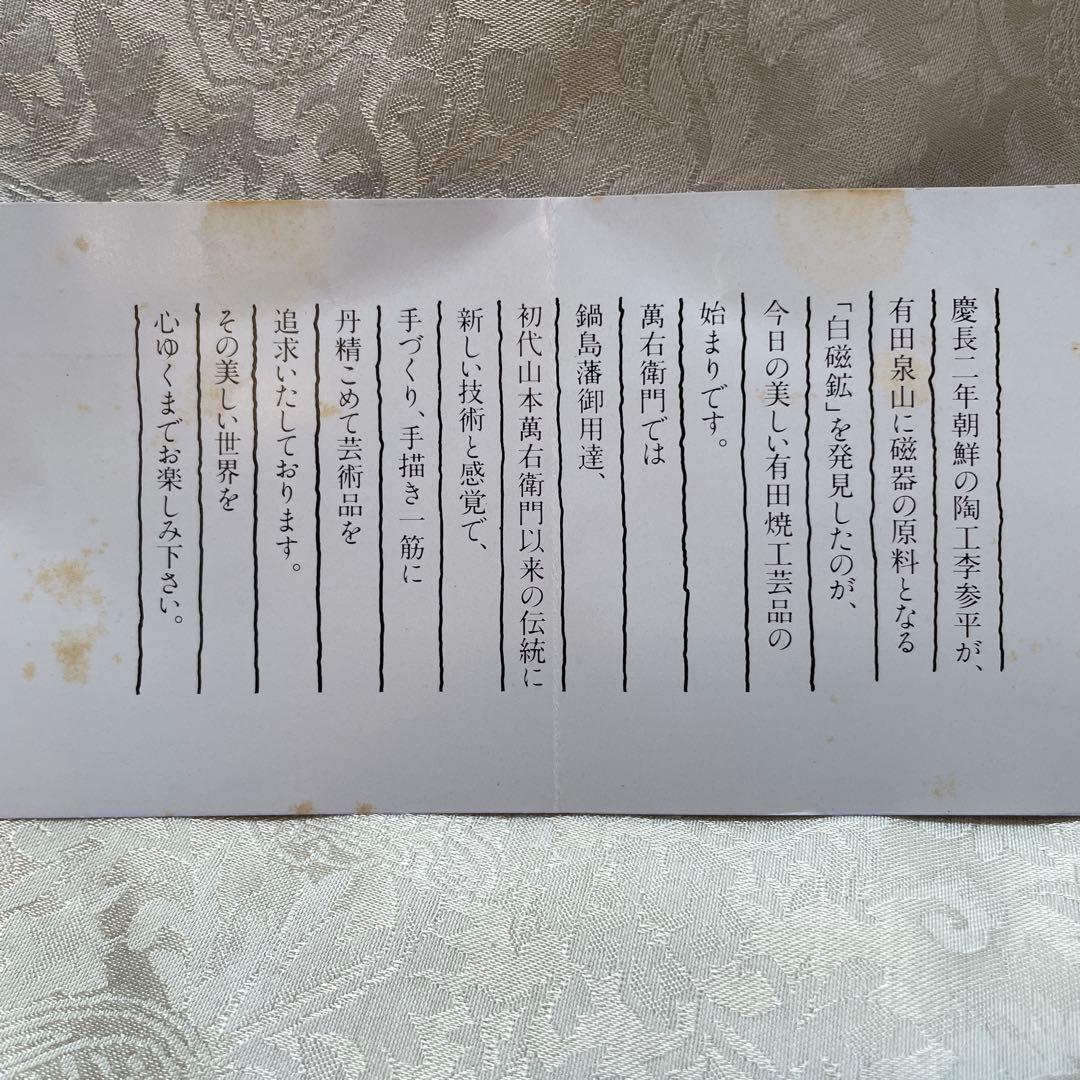 慶長二年朝鮮の陶工李参平が、
有田泉山に磁器の原料となる
「白磁鉱」を発見したのが、
今日の美しい有田焼工芸品の
始まりです。
萬右衛門では
鍋島藩御用達、
初代山本萬右衛門以来の伝統に
新しい技術と感覚で、
手づくり、手描き一筋に
丹精こめて芸術品を
追求いたしております。
その美しい世界を
心ゆくまでお楽しみ下さい。